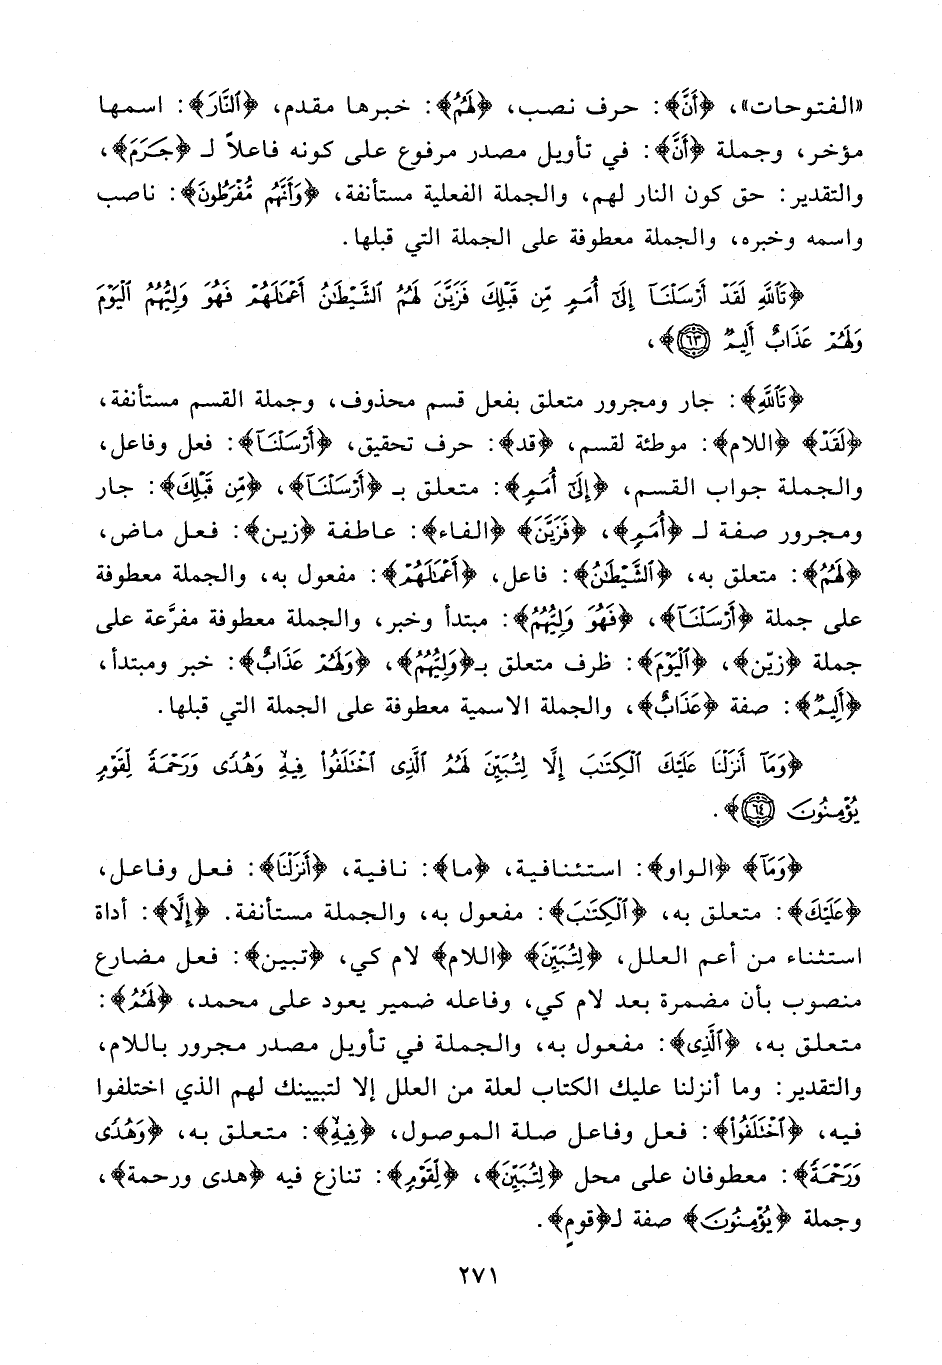 «الفتوحات»، ﴿أَنَّ﴾: حرف نصب، ﴿لَهُمُ﴾: خبرها مقدم، ﴿ٱلنَّارَ﴾: اسمها
مؤخر، وجملة ﴿أَنَّ﴾: في تأويل مصدر مرفوع على كونه فاعلاً لـ ﴿جَرَمَ﴾،
والتقدير: حق كون النار لهم، والجملة الفعلية مستأنفة، ﴿وَأَنَّهُم مُّفْرَطُونَ﴾: ناصب
واسمه وخبره، والجملة معطوفة على الجملة التي قبلها.
﴿تَٱللَّهِ لَقَدْ أَرْسَلْنَآ إِلَىٰٓ أُمَمٍ مِّن قَبْلِكَ فَزَيَّنَ لَهُمُ ٱلشَّيْطَٰنُ أَعْمَٰلَهُمْ فَهُوَ وَلِيُّهُمُ ٱلْيَوْمَ
وَلَهُمْ عَذَابٌ أَلِيمٌ ٦٣﴾،
﴿تَٱللَّهِ﴾: جار ومجرور متعلق بفعل قسم محذوف، وجملة القسم مستأنفة،
﴿لَقَدْ﴾ ﴿اللام﴾: موطئة لقسم، ﴿قد﴾: حرف تحقيق، ﴿أَرْسَلْنَآ﴾: فعل وفاعل،
والجملة جواب القسم، ﴿إِلَىٰٓ أُمَمٍ﴾: متعلق بـ ﴿أَرْسَلْنَآ﴾، ﴿مِّن قَبْلِكَ﴾: جار
ومجرور صفة لـ ﴿أُمَمٍ﴾، ﴿فَزَيَّنَ﴾ ﴿الفاء﴾: عاطفة ﴿زين﴾: فعل ماض،
﴿لَهُمُ﴾: متعلق به، ﴿ٱلشَّيْطَٰنُ﴾: فاعل، ﴿أَعْمَٰلَهُمْ﴾: مفعول به، والجملة معطوفة
على جملة ﴿أَرْسَلْنَآ﴾، ﴿فَهُوَ وَلِيُّهُمُ﴾: مبتدأ وخبر، والجملة معطوفة مفرَّعة على
جملة ﴿زيّن﴾، ﴿ٱلْيَوْمَ﴾: ظرف متعلق بـ﴿وَلِيُّهُمُ﴾، ﴿وَلَهُمْ عَذَابٌ﴾: خبر ومبتدأ،
﴿أَلِيمٌ﴾: صفة ﴿عَذَابٌ﴾، والجملة الاسمية معطوفة على الجملة التي قبلها.
﴿وَمَآ أَنزَلْنَا عَلَيْكَ ٱلْكِتَٰبَ إِلَّا لِتُبَيِّنَ لَهُمُ ٱلَّذِى ٱخْتَلَفُوا۟ فِيهِ وَهُدًى وَرَحْمَةً لِّقَوْمٍ
يُؤْمِنُونَ ٦٤﴾.
﴿وَمَآ﴾ ﴿الواو﴾: استئنافية، ﴿ما﴾: نافية، ﴿أَنزَلْنَا﴾: فعل وفاعل،
﴿عَلَيْكَ﴾: متعلق به، ﴿ٱلْكِتَٰبَ﴾: مفعول به، والجملة مستأنفة. ﴿إِلَّا﴾: أداة
استثناء من أعم العلل، ﴿لِتُبَيِّنَ﴾ ﴿اللام﴾ لام كي، ﴿تبين﴾: فعل مضارع
منصوب بأن مضمرة بعد لام كي، وفاعله ضمير يعود على محمد، ﴿لَهُمُ﴾:
متعلق به، ﴿ٱلَّذِى﴾: مفعول به، والجملة في تأويل مصدر مجرور باللام،
والتقدير: وما أنزلنا عليك الكتاب لعلة من العلل إلا لتبيينك لهم الذي اختلفوا
فيه، ﴿ٱخْتَلَفُوا۟﴾: فعل وفاعل صلة الموصول، ﴿فِيهِ﴾: متعلق به، ﴿وَهُدًى
وَرَحْمَةً﴾: معطوفان على محل ﴿لِتُبَيِّنَ﴾، ﴿لِّقَوْمٍ﴾: تنازع فيه ﴿هدى ورحمة﴾،
وجملة ﴿يُؤْمِنُونَ﴾ صفة لـ﴿قومٍ﴾.
٢٧١